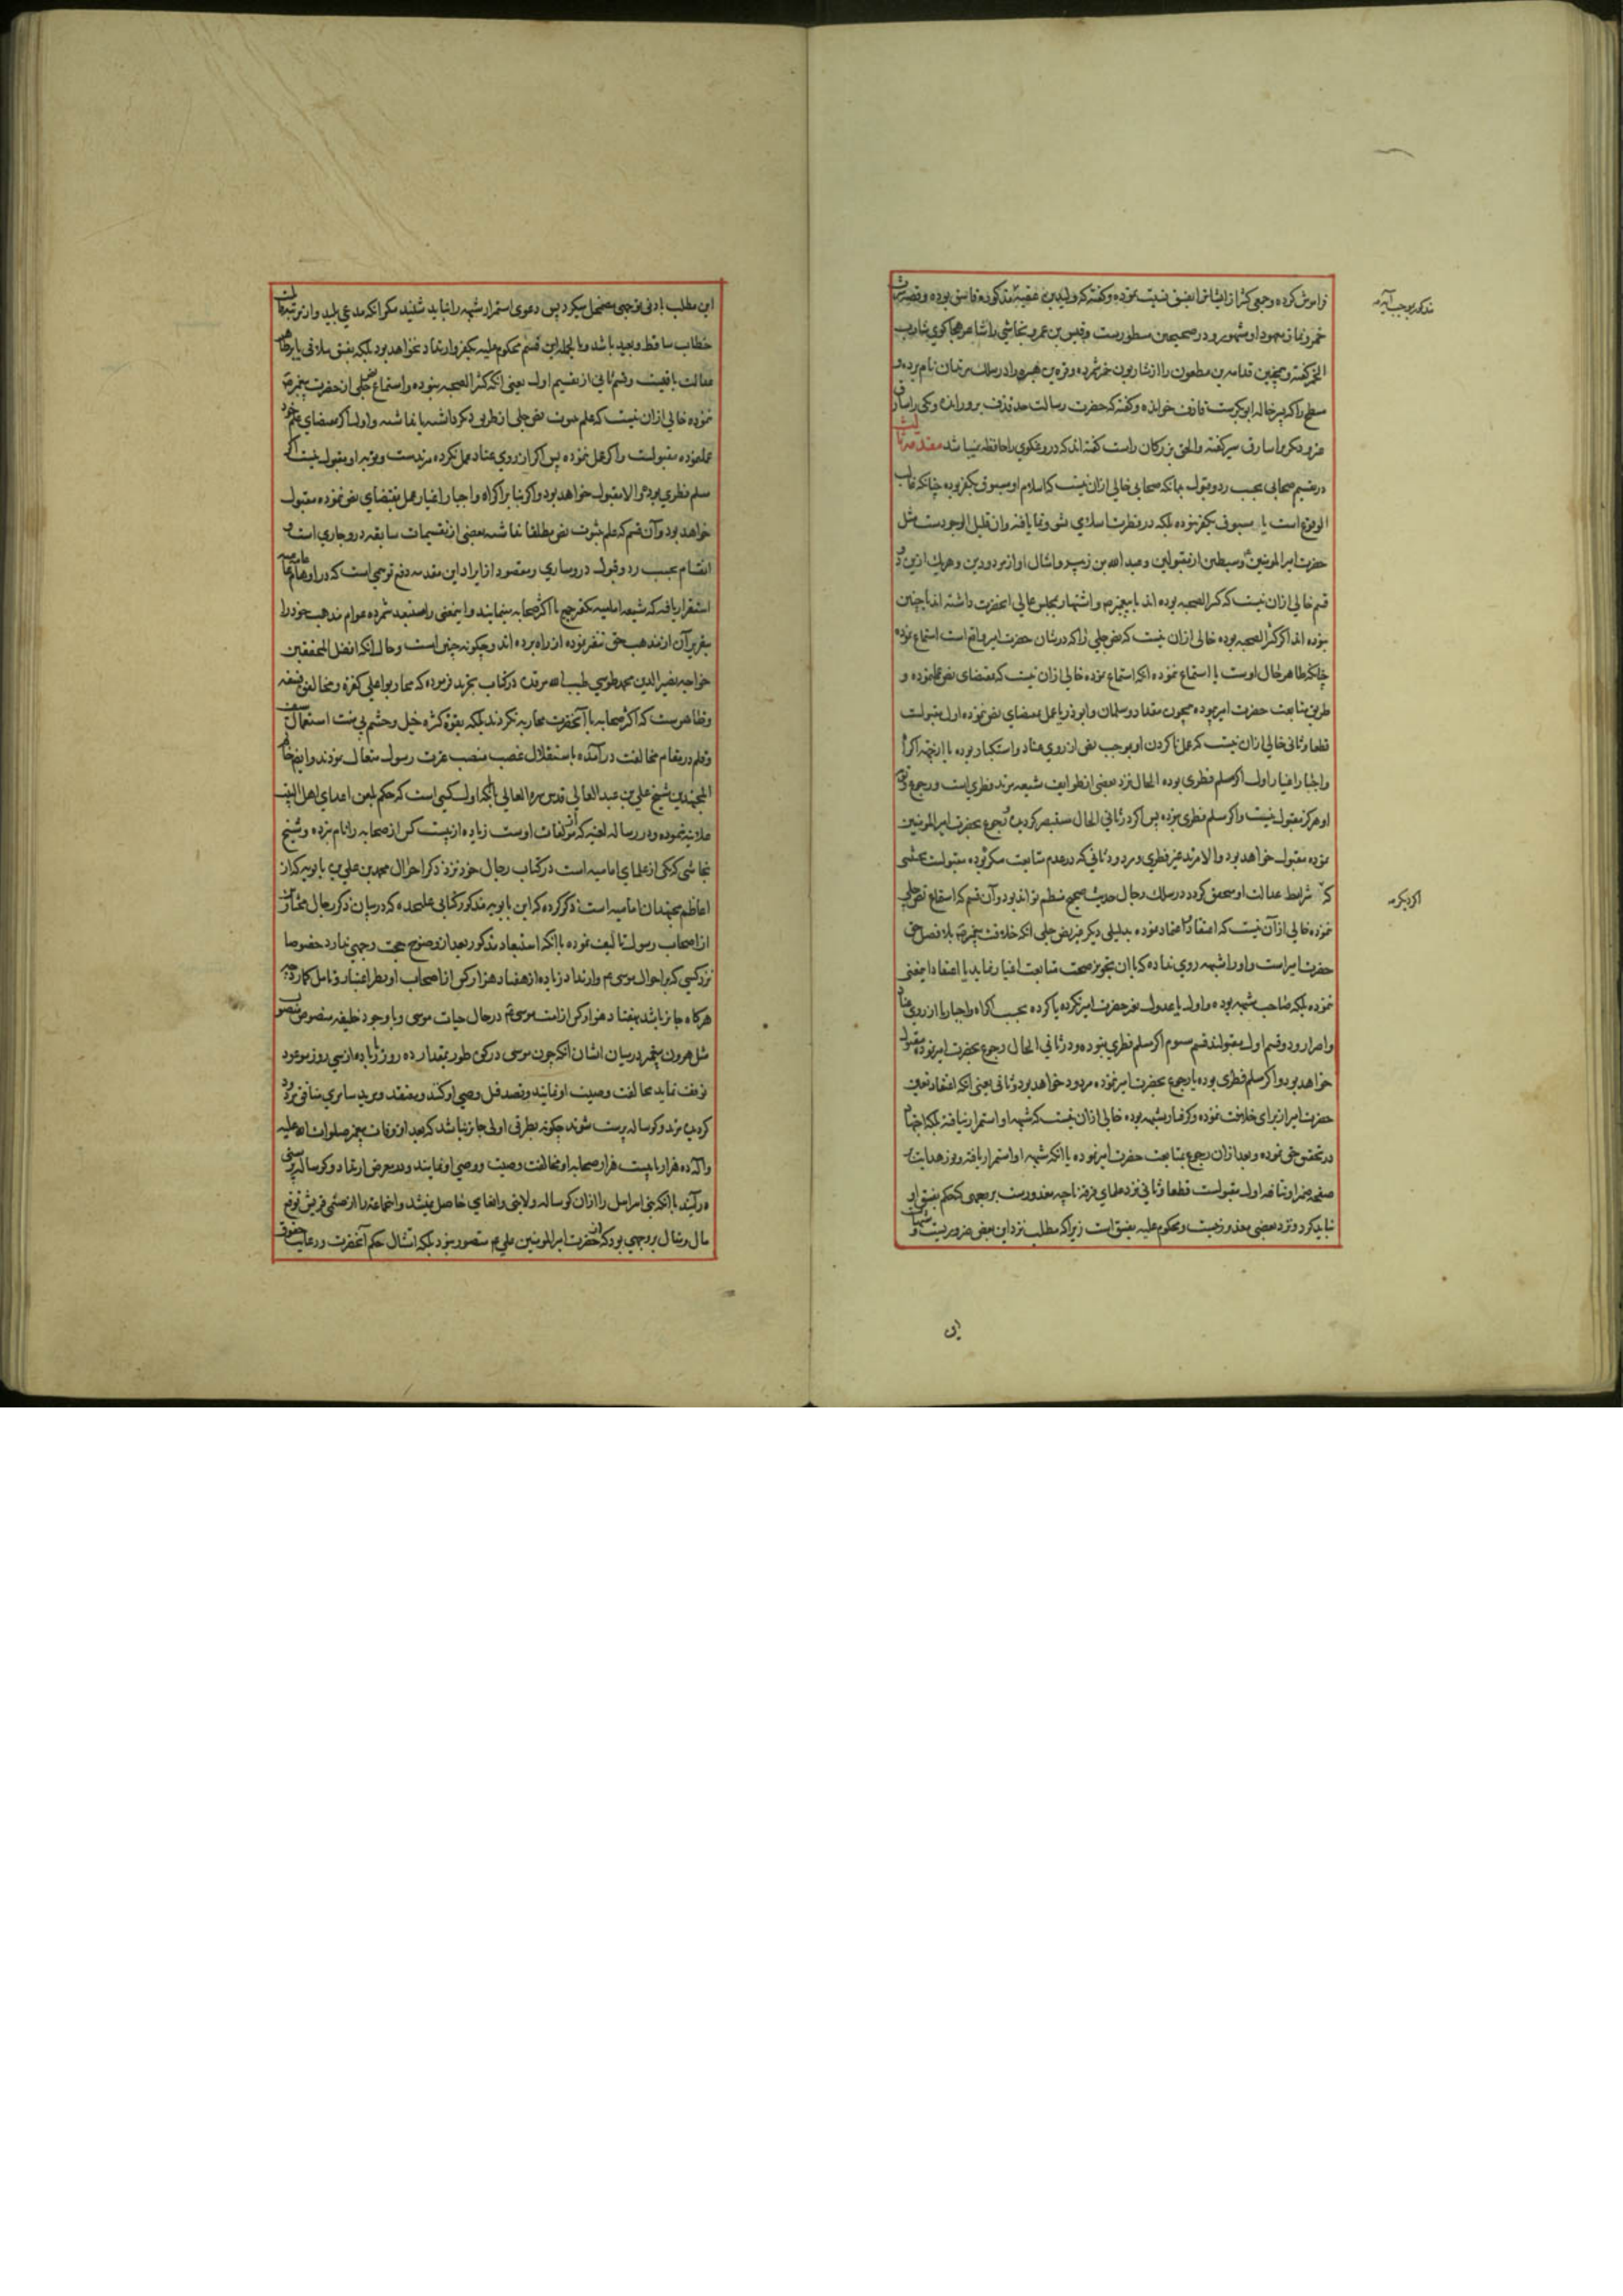 فراموش کرده و جمعی کثیر از ایشان را بفسق نسبت نموده و گفته که ولید بن عقبه مذکور فاسق بوده و قصه شرب
خمر و نماز او مشهور و در صحیحین مسطورست و قیس بن عمرو نجاشی را شاعر هجاگوی شارب
الخمر گفته و همچنین قدامه بن مظعون را از شاربون خمر شمرده و
مسطح را که پسر خاله ابو بکرست قاذف خوانده و گفته که حضرت رسالت حد قذف برو رانده و یکی را سارق
سارق سیر گفته و الحق بزرگان راست گفته‌اند که دروغگوی را حافظه نمیباشد مقدمه ثالث
در تقسیم صحابی بحسب رد و قبول بدانکه صحابی خالی ازان نیست که اسلام او مسبوق بکفر بوده چنانکه غالب
الوقوع است یا مسبوق بکفر نبوده بلکه در فطرت اسلامی نشو و نما یافته و آن قلیل الوجودست مثل
حضرت امیر المومنین و سبطین از مقبولین و عبد الله بن زبیر و امثال او از مردودین و هر یک ازین دو
قسم خالی ازان نیست که کثیر الصحبه بوده اند با پیغمبر و اشتهار بمجلس عالی آنحضرت داشته اند یا چنین
نبوده اند اگر کثیر الصحبه بوده خالی ازان نیست که نص جلی را که در شان حضرت امیر واقع است استماع نموده
چنانکه ظاهر حال اوست یا استماع ننموده آنکه استماع نموده خالی ازان نیست که بمقتضای نص عمل نموده و
طریق متابعت حضرت امیر پیموده همچون مقداد و سلمان و ابوذر یا عمل بمقتضای نص ننموده اول مقبولست
قطعا و ثانی خالی ازان نیست که عمل ناکردن او بموجب نص از روی عناد و استکبار بوده یا از جهت اکراه
واجبار اختیار اول اگر مسلم فطری بوده الحال نزد بعضی از طوایف شیعه مرتد فطری است و رجوع و توبه
او هرگز مقبول نیست و اگر مسلم فطری نبوده پس اگر در ثانی الحال مستبصر گردیده رجوع بحضرت امیر المومنین
نموده مقبول خواهد بود و الا مرتد غیر فطری و مردود و ثانی که در عدم متابعت مکره بوده مقبولست بمعنی
که شرایط عدالت او متحقق گردد در سلک رجال حدیث صحیح منتظم تواند بود و آن قسم که استماع نص جلی
ننموده خالی از آن نیست که اعتقاد نموده بدلیلی دیگر غیر نص جلی آنکه خلافت پیغمبر بلا فصل حق
حضرت امیر است و او را شبهه روی نداده که با آن تجویز صحت متابعت اغیار نماید یا اعتقاد اینمعنی
ننموده بلکه صاحب شبهه بوده و اول یا عدول بغیر حضرت امیر نکرده یا کرده بحسب اکراه و اجبار یا از روی عناد
واصرار و دو قسم اول مقبولند قسم سوم اگر مسلم فطری نبوده و در ثانی الحال رجوع بحضرت امیر نموده مقبول
خواهد بود و اگر مسلم فطری بوده یا رجوع بحضرت امیر ننموده مردود خواهد بود و ثانی یعنی آنکه اعتقاد تعین
حضرت امیر از برای خلافت ننموده و گرفتار شبهه بوده خالی ازان نیست که شبهه او استمرار نیافته بلکه اجتهاد
در تحقیق حق نموده و بعد ازان رجوع بمتابعت حضرت امیر نموده یا آنکه شبهه او استمرار یافته و نور هدایت بر
صفحه ضمیر او نتافته اول مقبولست قطعا و ثانی نزد علمای فرقه ناجیه معذورست بر وجهی که حکم بفسق او
نباید کرد و نزد بعضی معذور نیست و محکوم علیه بفسق است زیرا که مطلب نزد این بعض ضروریست و شبهات
مذکور بوجب آیه
اگر دیگر
این
این مطلب بادنی توجهی مضمحل میگردد پس دعوی استمرار شبهه را نباید شنید مگر آنکه مدعی بلید و از مرتبه
خطاب ساقط و بعید باشد و بالجمله این قسم محکوم علیه بکفر و ارتداد نخواهد بود بلکه بفسق ملاقی یا بر ظاهر
عدالت باقیست و قسم ثانی از تقسیم اول یعنی آنکه کثیر الصحبه نبوده و استماع نص جلی از حضرت پیغمبر
ننموده خالی ازان نیست که علم بثبوت نص جلی از طریق دیگر داشته یا نداشته و اول اگر بمقتضای علم خود
عمل نموده مقبولست و اگر عمل ننموده پس اگر از روی عناد عمل نکرده مرتدست و توبه او مقبول نیست اگر
مسلم فطری بوده و الا مقبول خواهد بود و اگر بنابر اکراه و اجبار اغیار عمل بمقتضای نص ننموده مقبول
خواهد بود و آن قسم که علم بثبوت نص مطلقا نداشته بعضی از تقسیمات سابقه درو جاری است و
اقسام بحسب رد و قبول درو ساری و مقصود از ایراد این مقدمه دفع توهمی است که در اوهام عامه
استقرار یافته که شیعه امامیه تکفیر جمیع یا اکثر صحابه مینمایند و اینمعنی را مستبعد شمرده عوام مذهب خود را
بتقریر آن از مذهب حق متنفر نموده از راه برده اند و چگونه چنین است و حال آنکه افضل المحققین
خواجه نصیر الدین محمد طوسی طیب الله مرقده در کتاب تجرید فرموده که محاربوا علی کفرة و مخالفوه فسقة
وظاهرست که اکثر صحابه با آنحضرت محاربه نکردند بلکه بقوة کثرة خیل و حشم بی منت استعمال سیف
وقلم در مقام مخالفت در آمده باستقلال غصب منصب عترت رسول متعال نمودند و ایضا خاتم
المجتهدین شیخ علی بن عبد العالی قدس سره العالی که اول کسی است که حکم بلعن اعدای اهل البیت
علانیه نموده و در رساله لعنیه که از مؤلفات اوست زیاده از بیست کس از صحابه را نام نبرده و شیخ
نجاشی که یکی از علمای امامیه است در کتاب رجال خود نزد ذکر احوال محمد بن علی بن بابویه که از
اعاظم مجتهدان امامیه است ذکر کرده که ابن بابویه مذکور کتابی علیحده که در بیان ذکر رجال مختار
از اصحاب رسول تالیف نموده با آنکه استبعاد مذکور بعد از وضوح حجت وجهی ندارد خصوصا
نزد کسی که بر احوال موسی و ارتداد زیاده از هفتاد هزار کس از اصحاب او بنظر اعتبار و تامل گمارد چه
هرگاه جایز باشد هفتاد هزار کس از امت موسی در حال حیات موسی و با وجود خلیفه منصوص منصوب
مثل هرون پیغمبر در میان ایشان آنکه چون موسی در کوه طور بمقدار ده روز زیاده از سی روز موعود
توقف نماید مخالفت وصیت او نمایند و قصد قتل وصی او کنند و معتقد و مرید سامری منافق مردود
گردیده مرتد و گوساله پرست شوند چگونه بطریق اولی جایز نباشد که بعد از وفات پیغمبر صلوات الله علیه
وآله ده هزار یا بیست هزار صحابه او مخالفت وصیت و وصی او نمایند و در معرض ارتداد و گوساله پرستی
درآیند با آنکه بنی اسرائیل را ازان گوساله ولایتی و اقطاعی حاصل نمیشد و اجماعه را از صنمی قریش توقع
مال و منال بر وجهی بود که از حضرت امیر المومنین علی متصور نبود بلکه امتثال حکم آنحضرت و رعایت حقوق